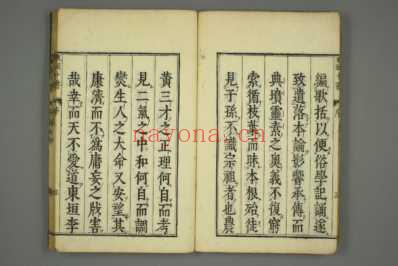 編歌括以便俗學記誦遂
致遺落本論影響承傳而
典墳靈素之奧義不復窮
索循枝葉而昧本根殆徒
見子孫不識宗祖者也農
黃三才之正理何自而考
見二氣之中和何自而調
爕生人之大命又安望其
康濟而不爲庸妄之戕害
哉幸而天不愛道東垣李
nayona.cn